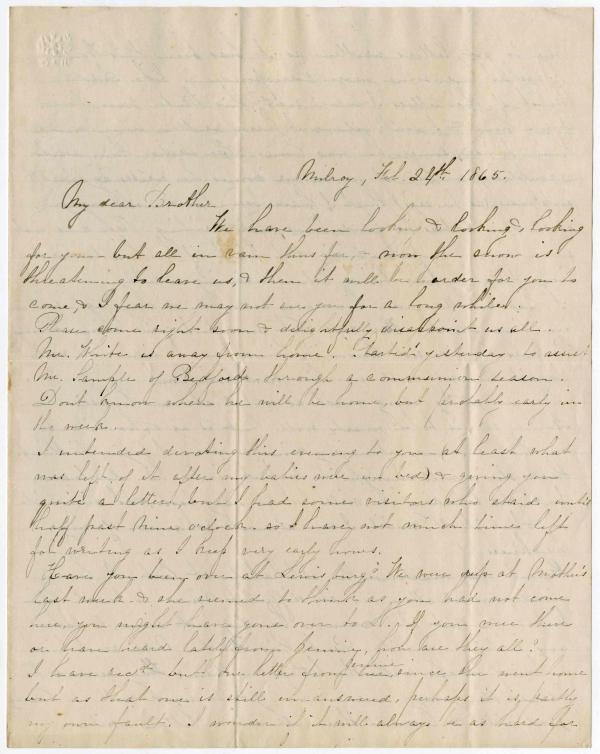 Milroy, Feb 24th 1865.
My dear Brother
We have been looking & looking & looking
for you - but all in vain thus far, & now the snow is
threatening to leave us, & then it will be harder for you to
come, & I fear we may not see you for a long while.
Please come right soon & delightfully disappoint us all.
Mr. White is away from home. Started yesterday to assist
Mr. Sample of Bedford through a communion season.
Dont know when he will be home, but probably early in
the week.
I intended devoting this evening to you - at least what
was left of it after my babies were in bed) & giving you
quite a letter, but I had some visitors who staid until
half past nine o'clock. so I have not much time left
for writing as I keep very early hours.
Have you been over at Lewisburg? We were up at Mother's
last week & she seemed to think as you had not come
here, you might have gone over to L. If you were there
or have heard lately from Jennie, how are they all?
I have recd but one letter from Jennie since she went home
but as that one is still unanswered, perhaps it is partly
my own fault. I wonder if it will always be as hard for